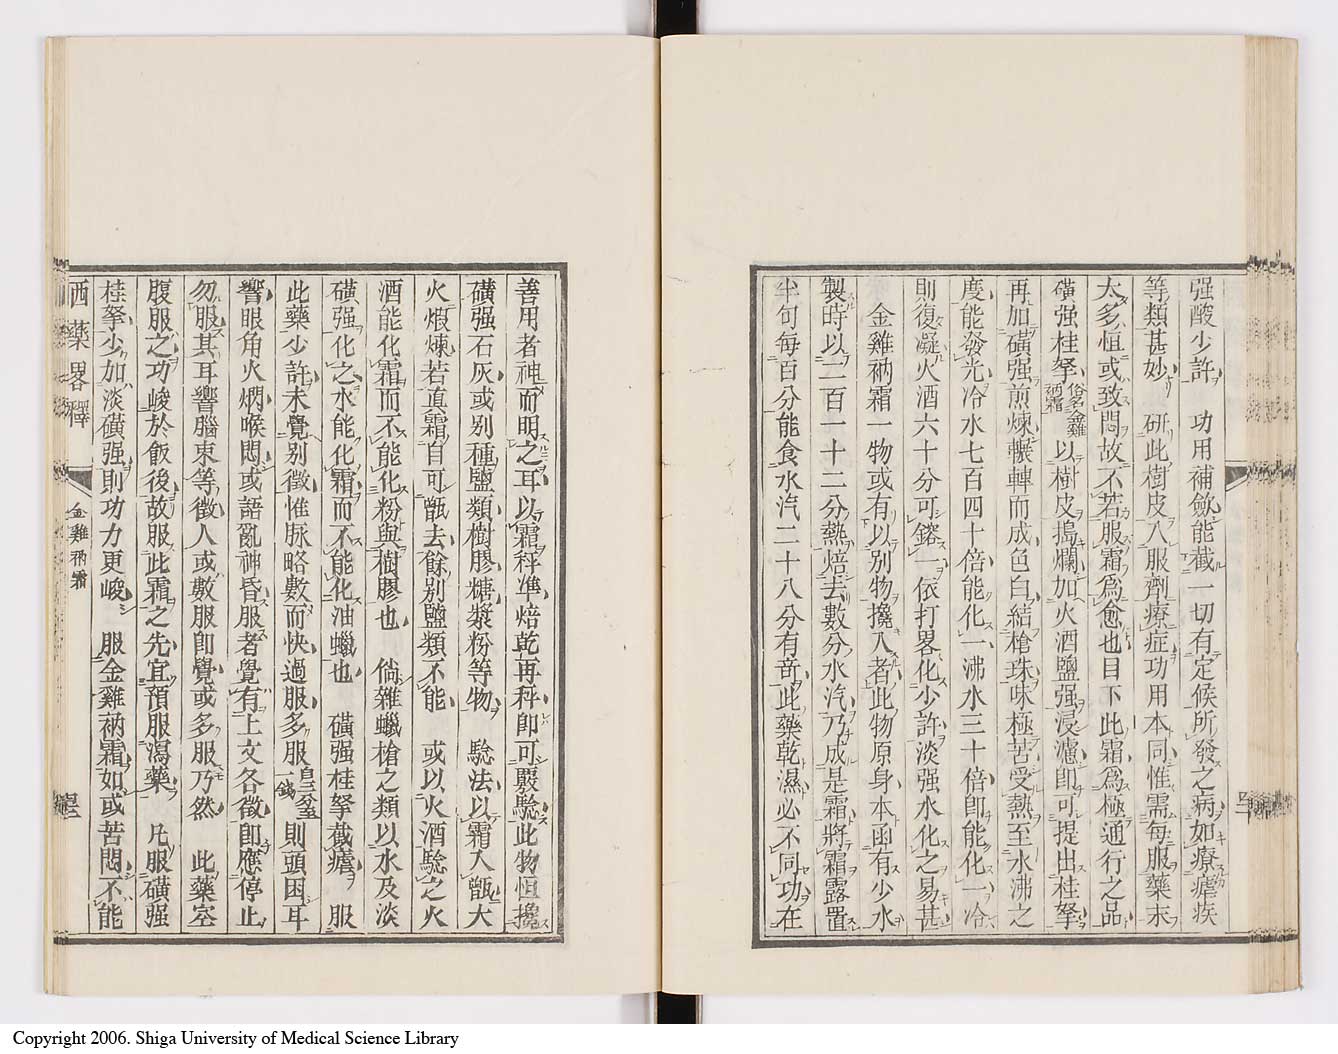 强酸少許　功用補斂能截一切有定候所發之病如療瘧疾
等類甚妙　研此樹皮入服劑療症功用本同惟需每服藥末
太多恒或致悶故不若服霜爲愈也目下此霜爲極通行之品
磺强桂孥俗名金雞衲霜以樹皮搗爛加火酒鹽强浸濾即可提出桂孥
再加磺强煎煉輾轉而成色白結槍珠味極苦受熱至水沸之
度能發光冷水七百四十倍能化一沸水三十倍即能化一冷
則復凝火酒六十分可鎔一依打畧化少許淡强水化之易甚
金雞衲霜一物或有以別物攙入者此物原身本函有少水
製時以二百一十二分熱焙去數分水汽乃成是霜將霜露置
半句每百分能食水汽二十八分有竒此藥乾濕必不同功在
善用者神而明之耳以霜秤準焙乾再秤即可覈驗此物恒攙
磺强石灰或別種鹽類樹膠糖漿粉等物　驗法以霜入甑大
火煅煉若直霜自可甑去餘別鹽類不能　或以火酒驗之火
酒能化霜而不能化粉與樹膠也　倘雜蠟槍之類以水及淡
磺强化之水能化霜而不能化油蠟也　磺强桂孥截瘧　服
此藥少許未覺別徵惟脉略數而快過服多服一錢則頭困耳
響眼角火燜喉悶或語亂神昏服者覺有上文各徵即應停止
勿服其耳響腦東等徵人或數服即覺或多服乃然　此藥空
腹服之功峻於飯後故服此霜之先宜預服瀉藥　凡服磺强
桂孥少加淡磺强則功力更峻　服金雞衲霜如或苦悶不能
西藥畧釋　金雞衲霜
Copyright 2006. Shiga University of Medical Science Library